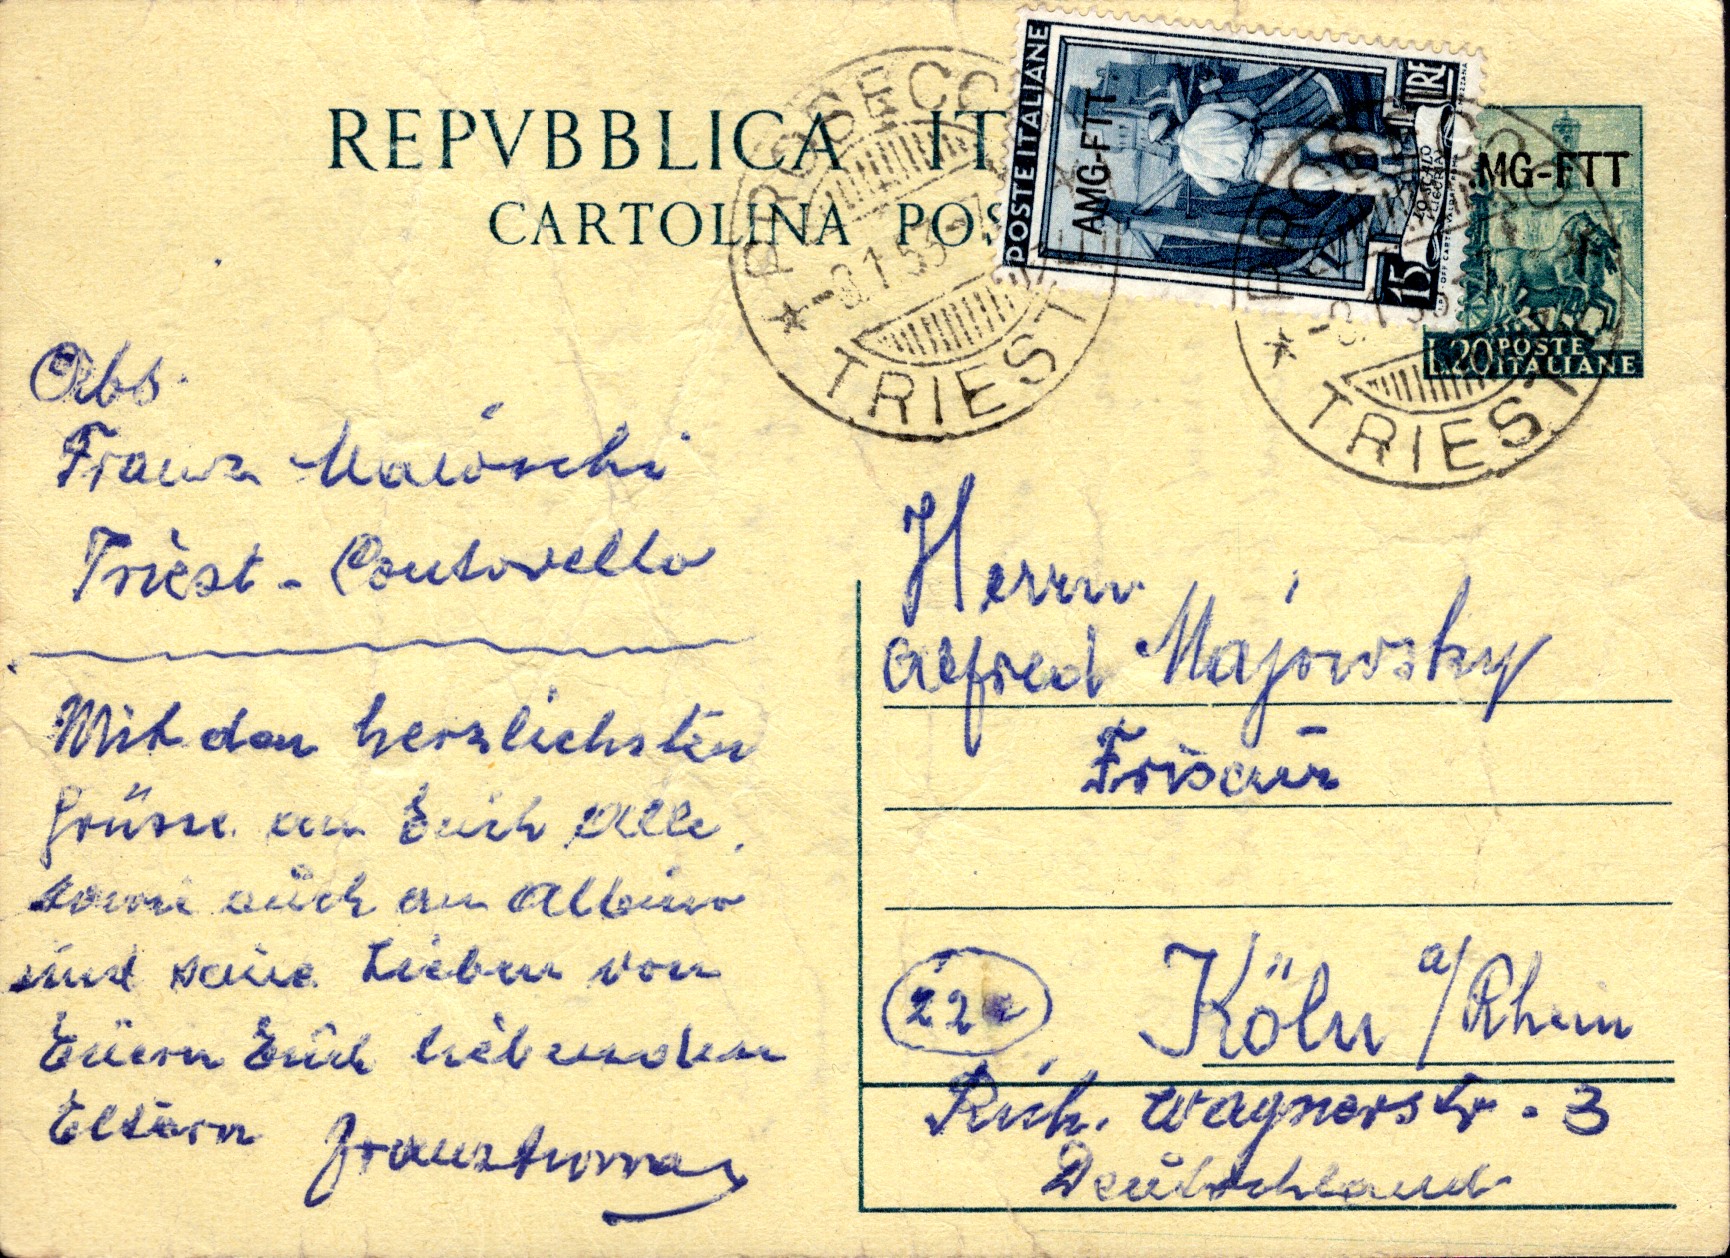 REPVBBLICA IT
CARTOLINA POS
PROSECCO
-3.1.53-
TRIESTE
POSTE ITALIANE
AMG-FTT
15
LIRE
LO SCALO
LIGURIA
MG-FTT
L.20 POSTE
ITALIANE
PROSECCO
TRIEST
Abs.
Franz
Triest - Contovello
Mit den herzlichsten
Grüsse an Euch Alle,
sowie auch an Albino
und seine Lieben von
Euern Euch liebenden
Eltern
Herrn
Alfred Majowsky
Friseur
22
Köln a/Rhein
Rich. Wagnerstr. 3
Deutschland